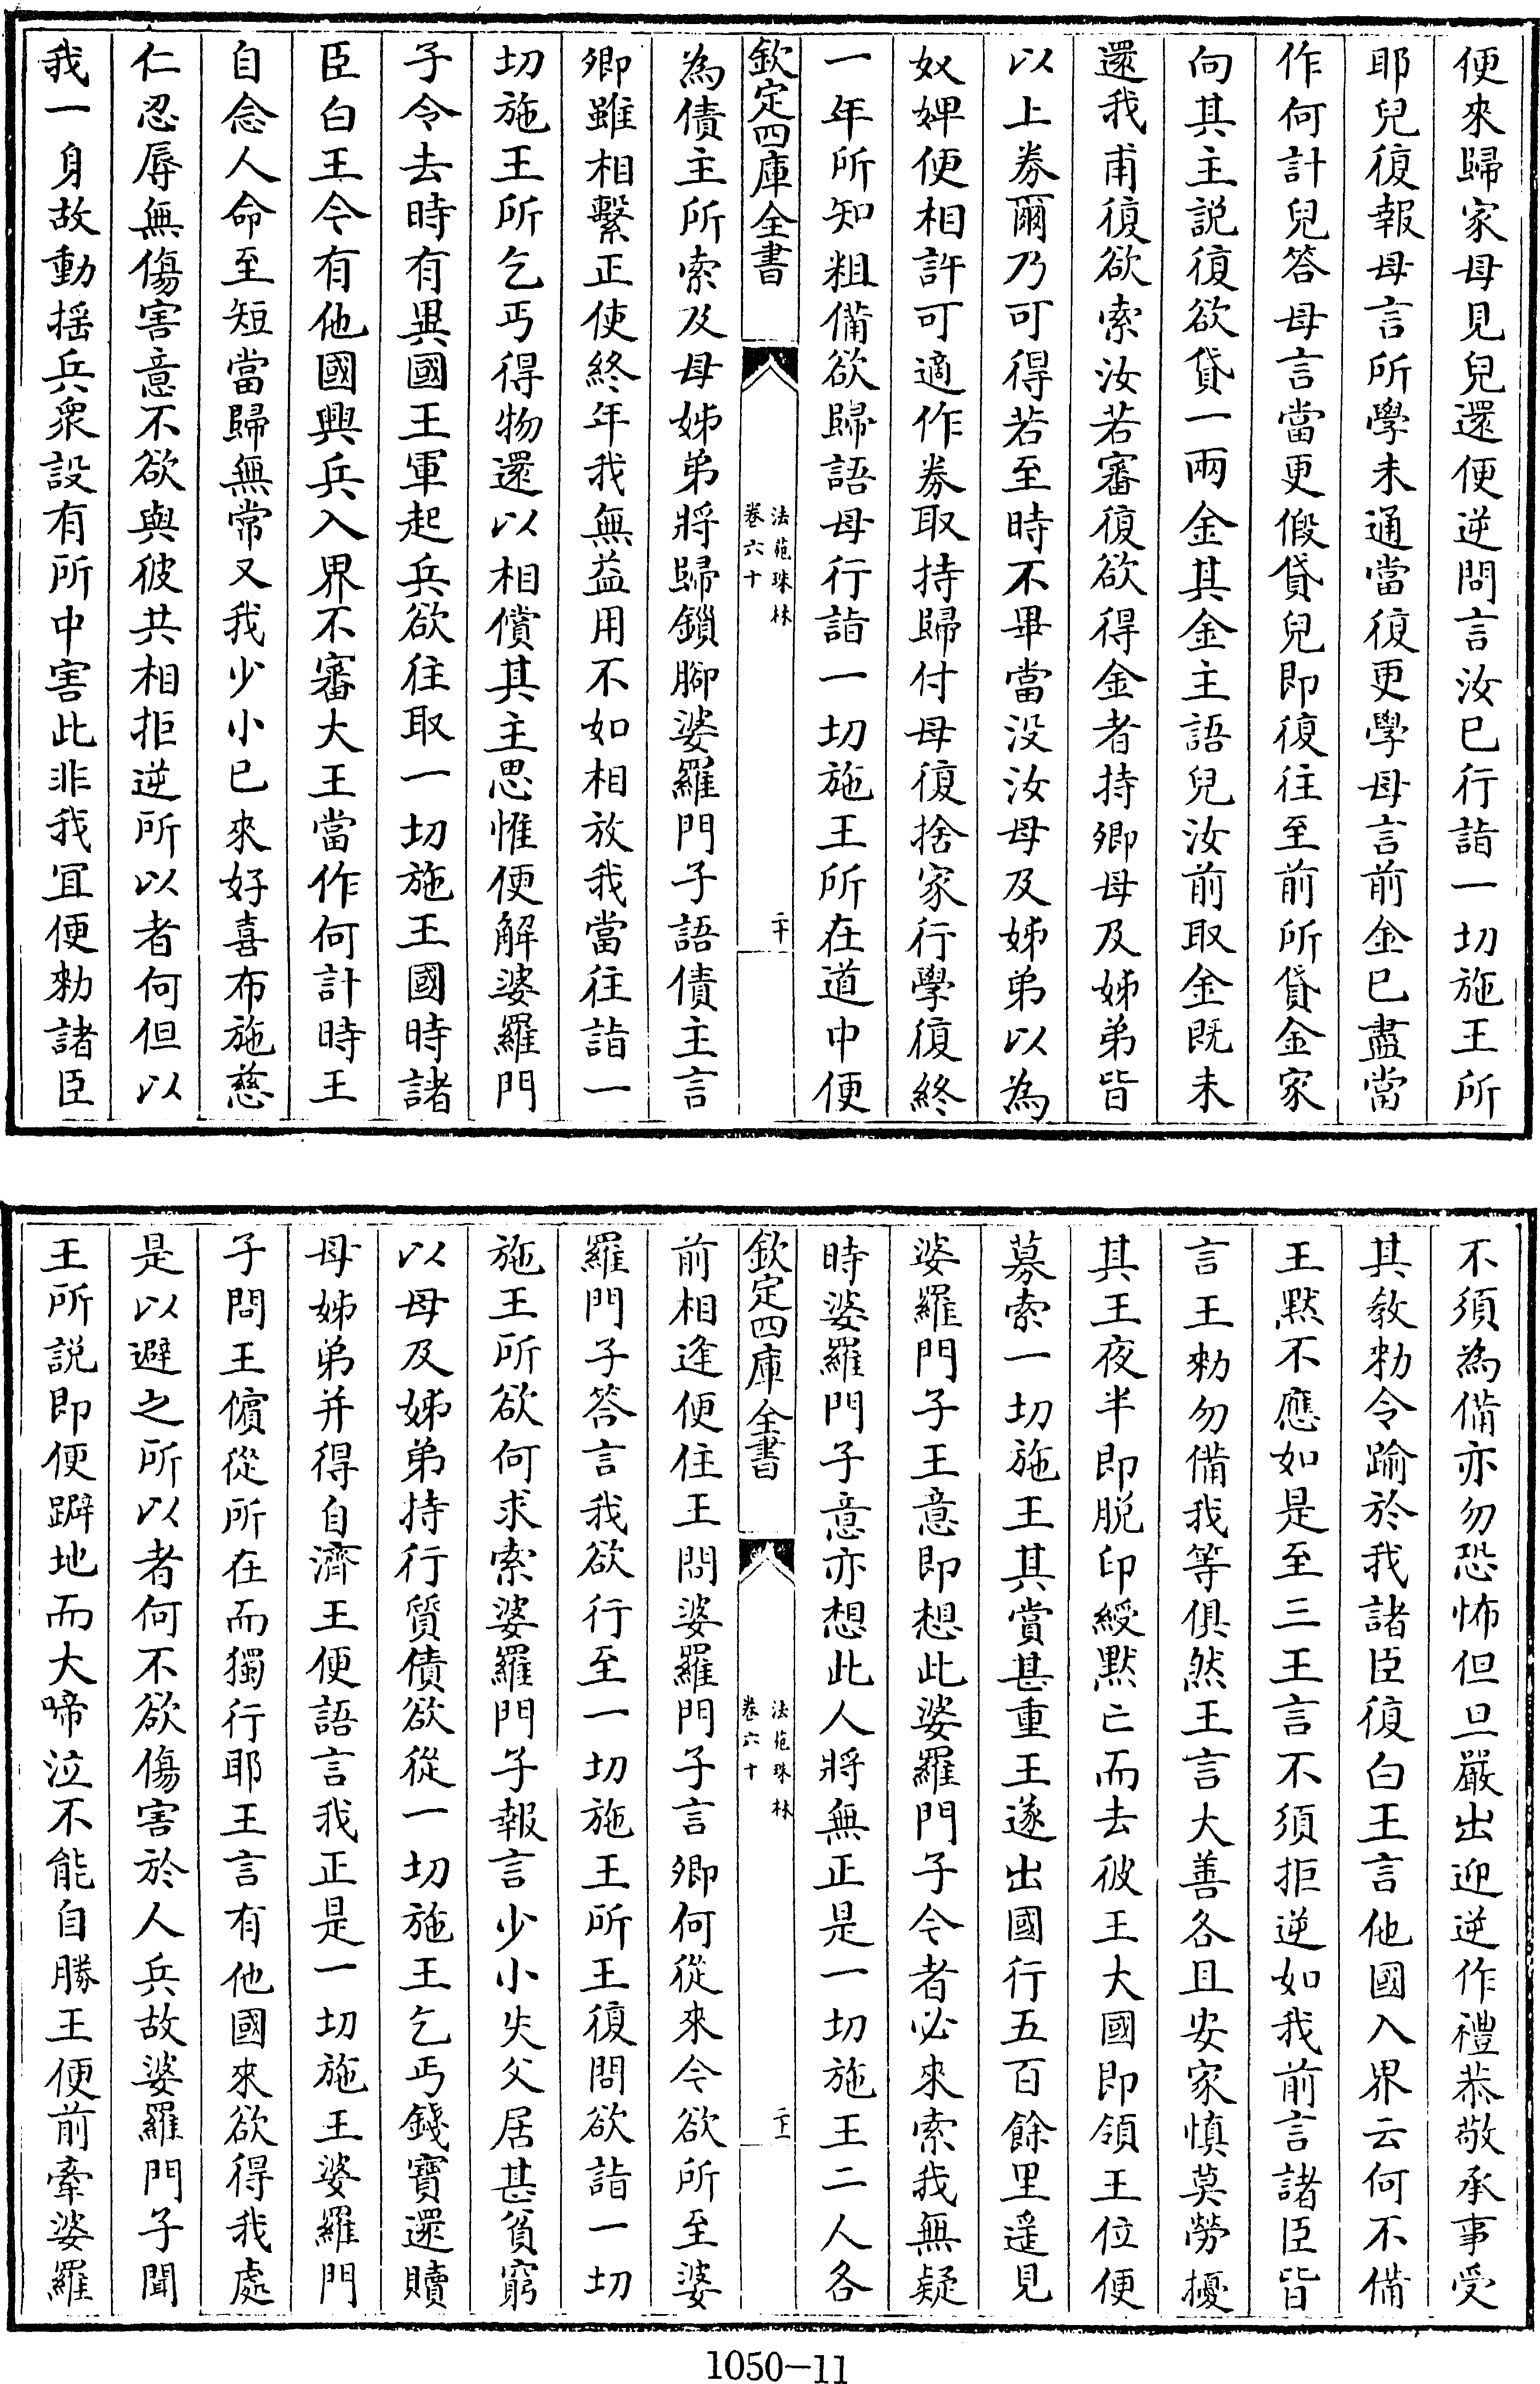 便來歸家母見兒還便逆問言汝已行詣一切施王所
耶兒復報母言所學未通當復更學母言前金已盡當
作何計兒答母言當更假貸兒即復往至前所貸金家
向其主説復欲貸一兩金其金主語兒汝前取金既未
還我甫復欲索汝若審復欲得金者持卿母及姊弟皆
以上券爾乃可得若至時不畢當没汝母及姊弟以為
奴婢便相許可適作券取持歸付母復捨家行學復終
一年所知粗備欲歸語母行詣一切施王所在道中便
欽定四庫全書
法苑珠林
卷六十
二十
為債主所索及母姊弟將歸鎻腳婆羅門子語債主言
卿雖相繫正使終年我無益用不如相放我當往詣一
切施王所乞丐得物還以相償其主思惟便解婆羅門
子令去時有異國王軍起兵欲往取一切施王國時諸
臣白王今有他國興兵入界不審大王當作何計時王
自念人命至短當歸無常又我少小已來好喜布施慈
仁忍辱無傷害意不欲與彼共相拒逆所以者何但以
我一身故動揺兵衆設有所中害此非我宜便勑諸臣
不須為備亦勿恐怖但旦嚴出迎逆作禮恭敬承事受
其敎勑令踰於我諸臣復白王言他國入界云何不備
王黙不應如是至三王言不須拒逆如我前言諸臣皆
言王勑勿備我等俱然王言大善各且安家慎莫勞擾
其王夜半即脱印綬黙亡而去彼王大國即領王位便
募索一切施王其賞甚重王遂出國行五百餘里遥見
婆羅門子王意即想此婆羅門子今者必來索我無疑
時婆羅門子意亦想此人將無正是一切施王二人各
欽定四庫全書
法苑珠林
卷六十
二十一
前相逢便住王問婆羅門子言卿何從來今欲所至婆
羅門子答言我欲行至一切施王所王復問欲詣一切
施王所欲何求索婆羅門子報言少小失父居甚貧窮
以母及姊弟持行質債欲從一切施王乞丐錢寶還贖
母姊弟并得自濟王便語言我正是一切施王婆羅門
子問王儐從所在而獨行耶王言有他國來欲得我處
是以避之所以者何不欲傷害於人兵故婆羅門子聞
王所説即便躃地而大啼泣不能自勝王便前牽婆羅
1050-11